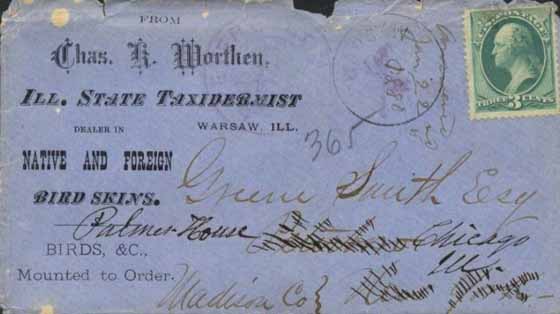 FROM
Chas. K. Worthen,
ILL. STATE TAXIDERMIST
WARSAW, ILL.
DEALER IN
NATIVE AND FOREIGN
BIRD SKINS.
BIRDS, &C.,
Mounted to Order.
THREE 3 CENTS
365
Greene Smith Esq
Palmer House
Chicago
Ill
Madison Co